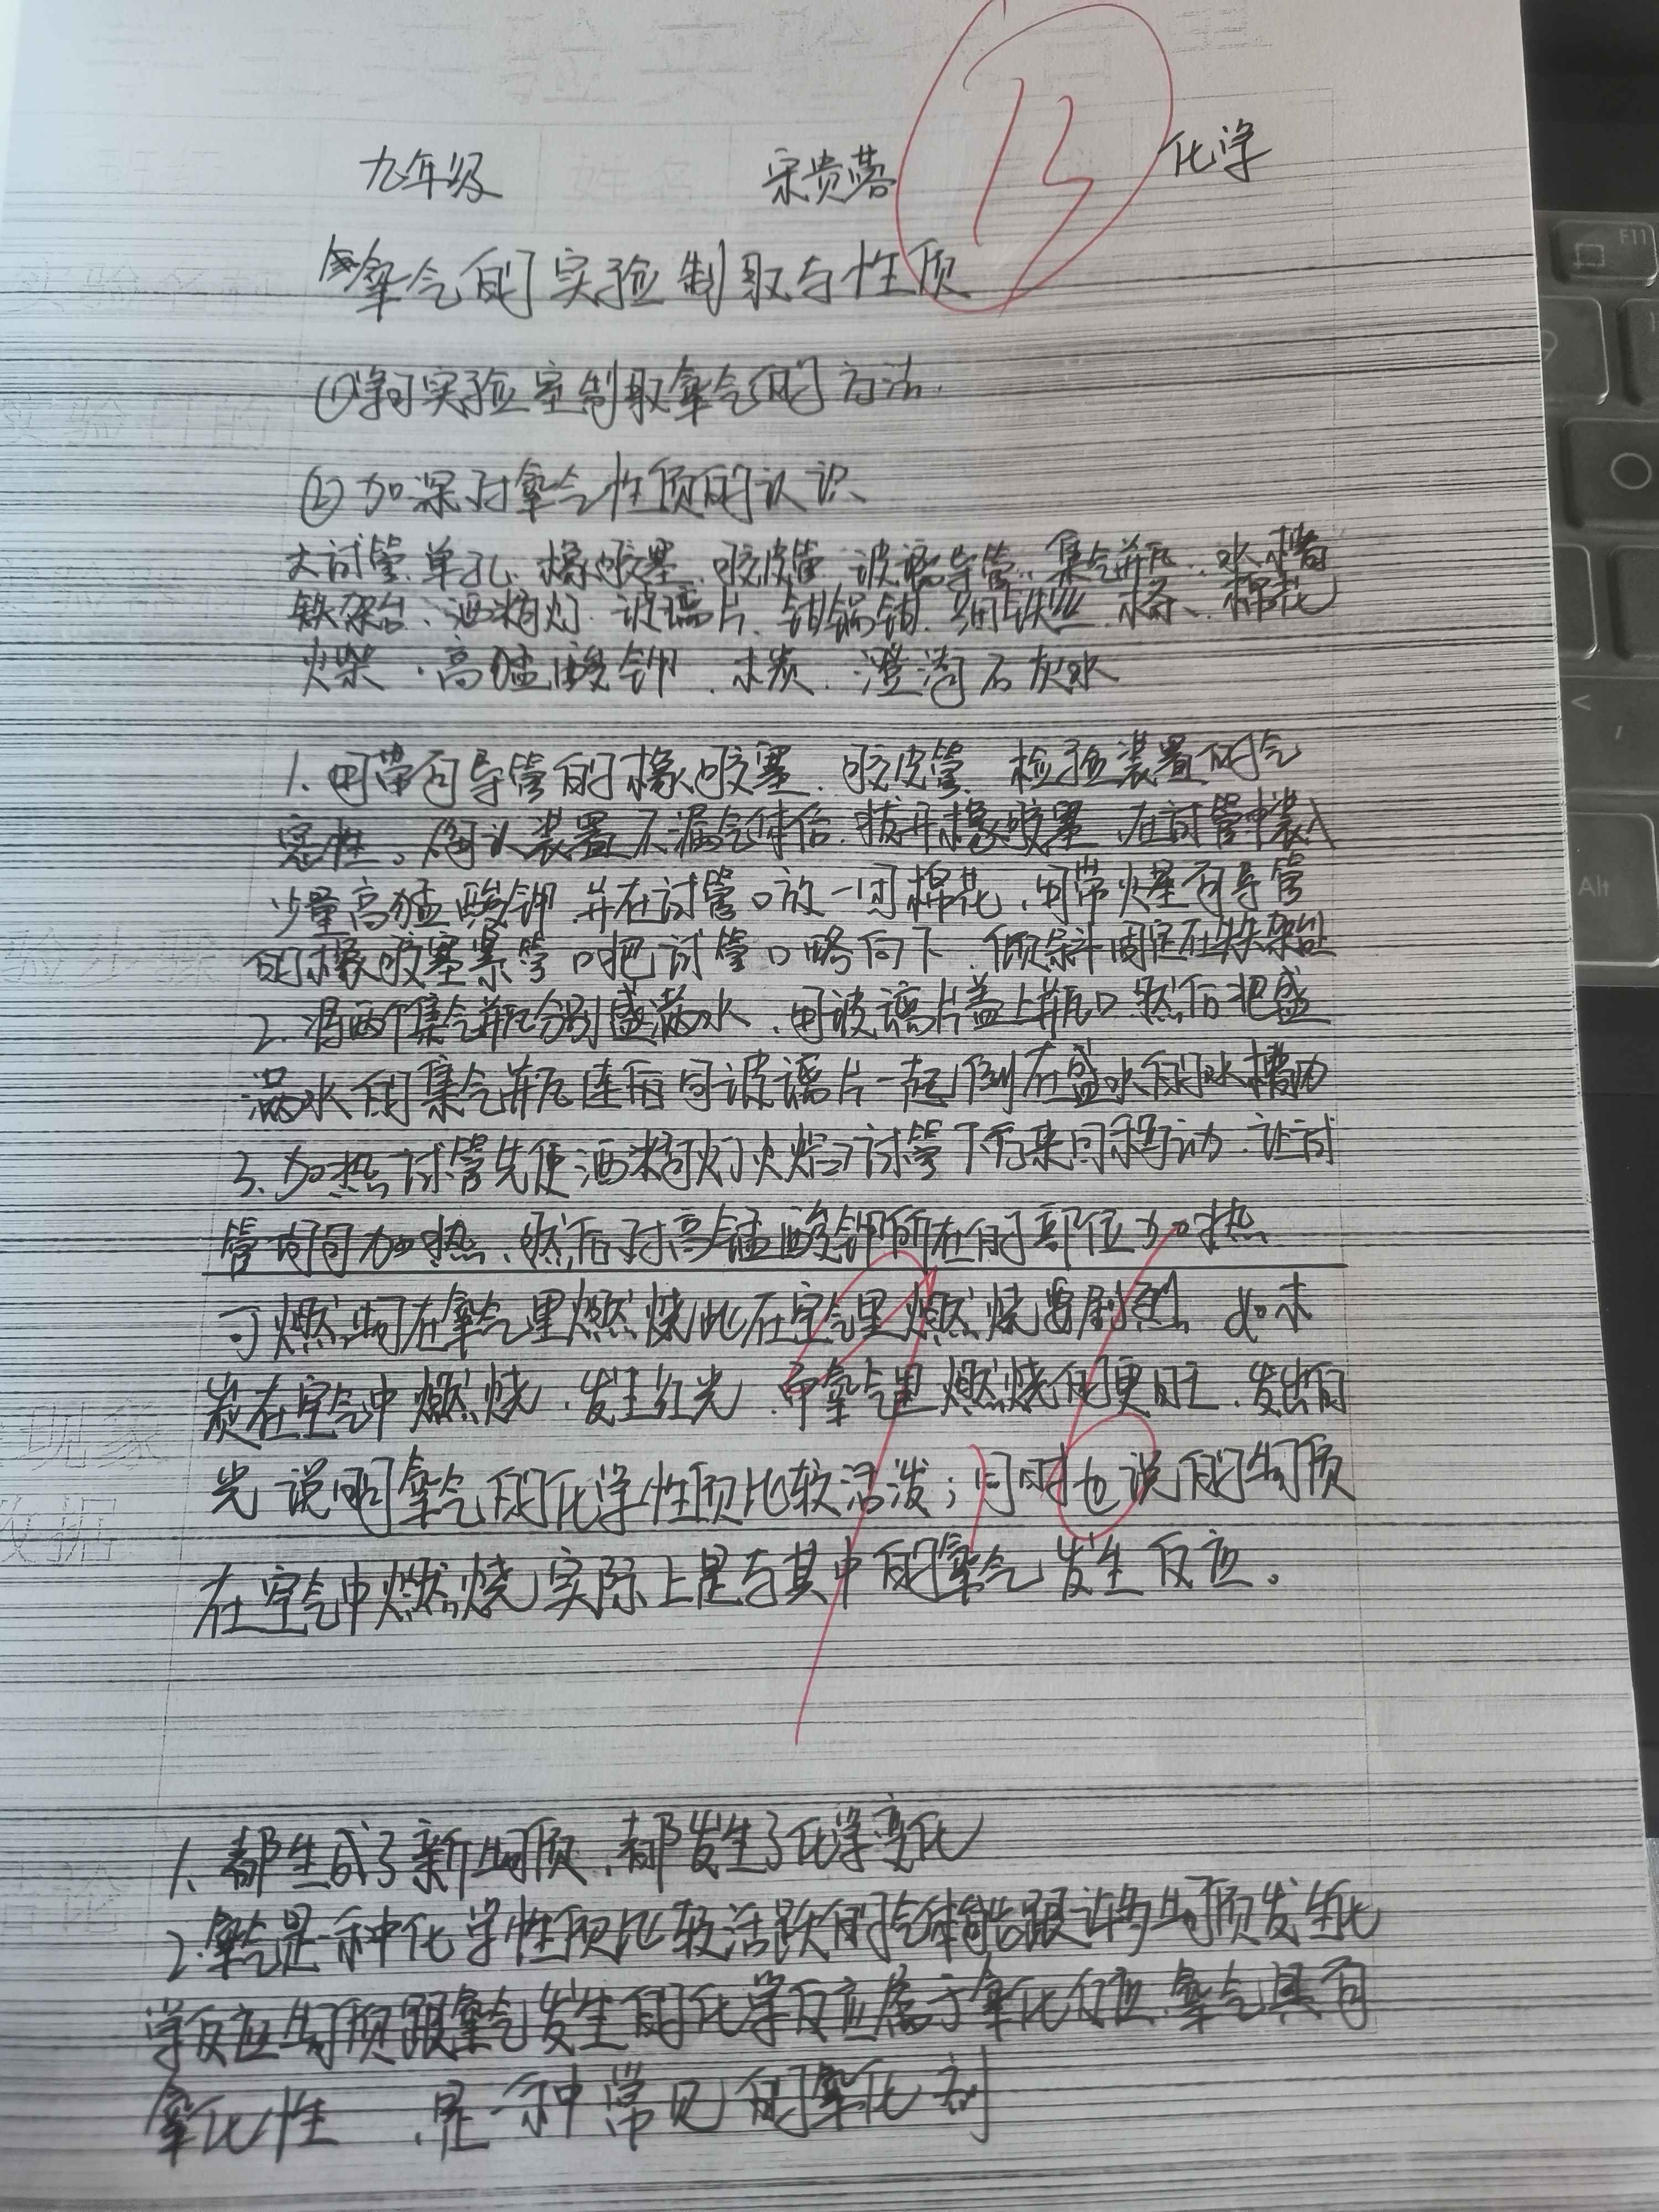 实验实验报告单
班级
姓名
九年级 宋贵蓉 13 化学
实验名称
氧气的实验制取与性质
实验目的
①学习实验室制取氧气的方法.
②加深对氧气性质的认识、
大试管、单孔、橡胶塞、胶皮管、玻璃导管、集气瓶、水槽
铁架台、酒精灯、玻璃片、钳锅钳、细铁丝、棉花
火柴、高锰酸钾、木炭、澄清石灰水
1. 用带有导管的橡胶塞、胶皮管、检验装置的气
密性。确认装置不漏气体后,拔开橡胶塞,在试管中装入
少量高锰酸钾,并在试管口放一团棉花,用带火星有导管
的橡胶塞紧管口把试管口略向下,倾斜固定在铁架台
2. 将两个集气瓶分别盛满水,用玻璃片盖上瓶口,然后把盛
满水的集气瓶连同玻璃片一起倒在盛水的水槽内
3. 加热试管先使酒精灯火焰在试管下方来回移动,让试
管均匀加热,然后对高锰酸钾所在的部位加热
可燃物在氧气里燃烧比在空气里燃烧要剧烈,如木
炭在空气中燃烧,发生红光,而氧气里燃烧的更旺,发出的
光 说明氧气的化学性质比较活泼;同时也说的物质
在空气中燃烧实际上是与其中的氧气发生反应。
现象
数据
结论
1、都生成了新物质,都发生了化学变化
2.氧气是一种化学性质比较活跃的气体能跟许多物质发生化
学反应物质跟氧气发生的化学反应属于氧化反应,氧气具有
氧化性,是一种常见的氧化剂